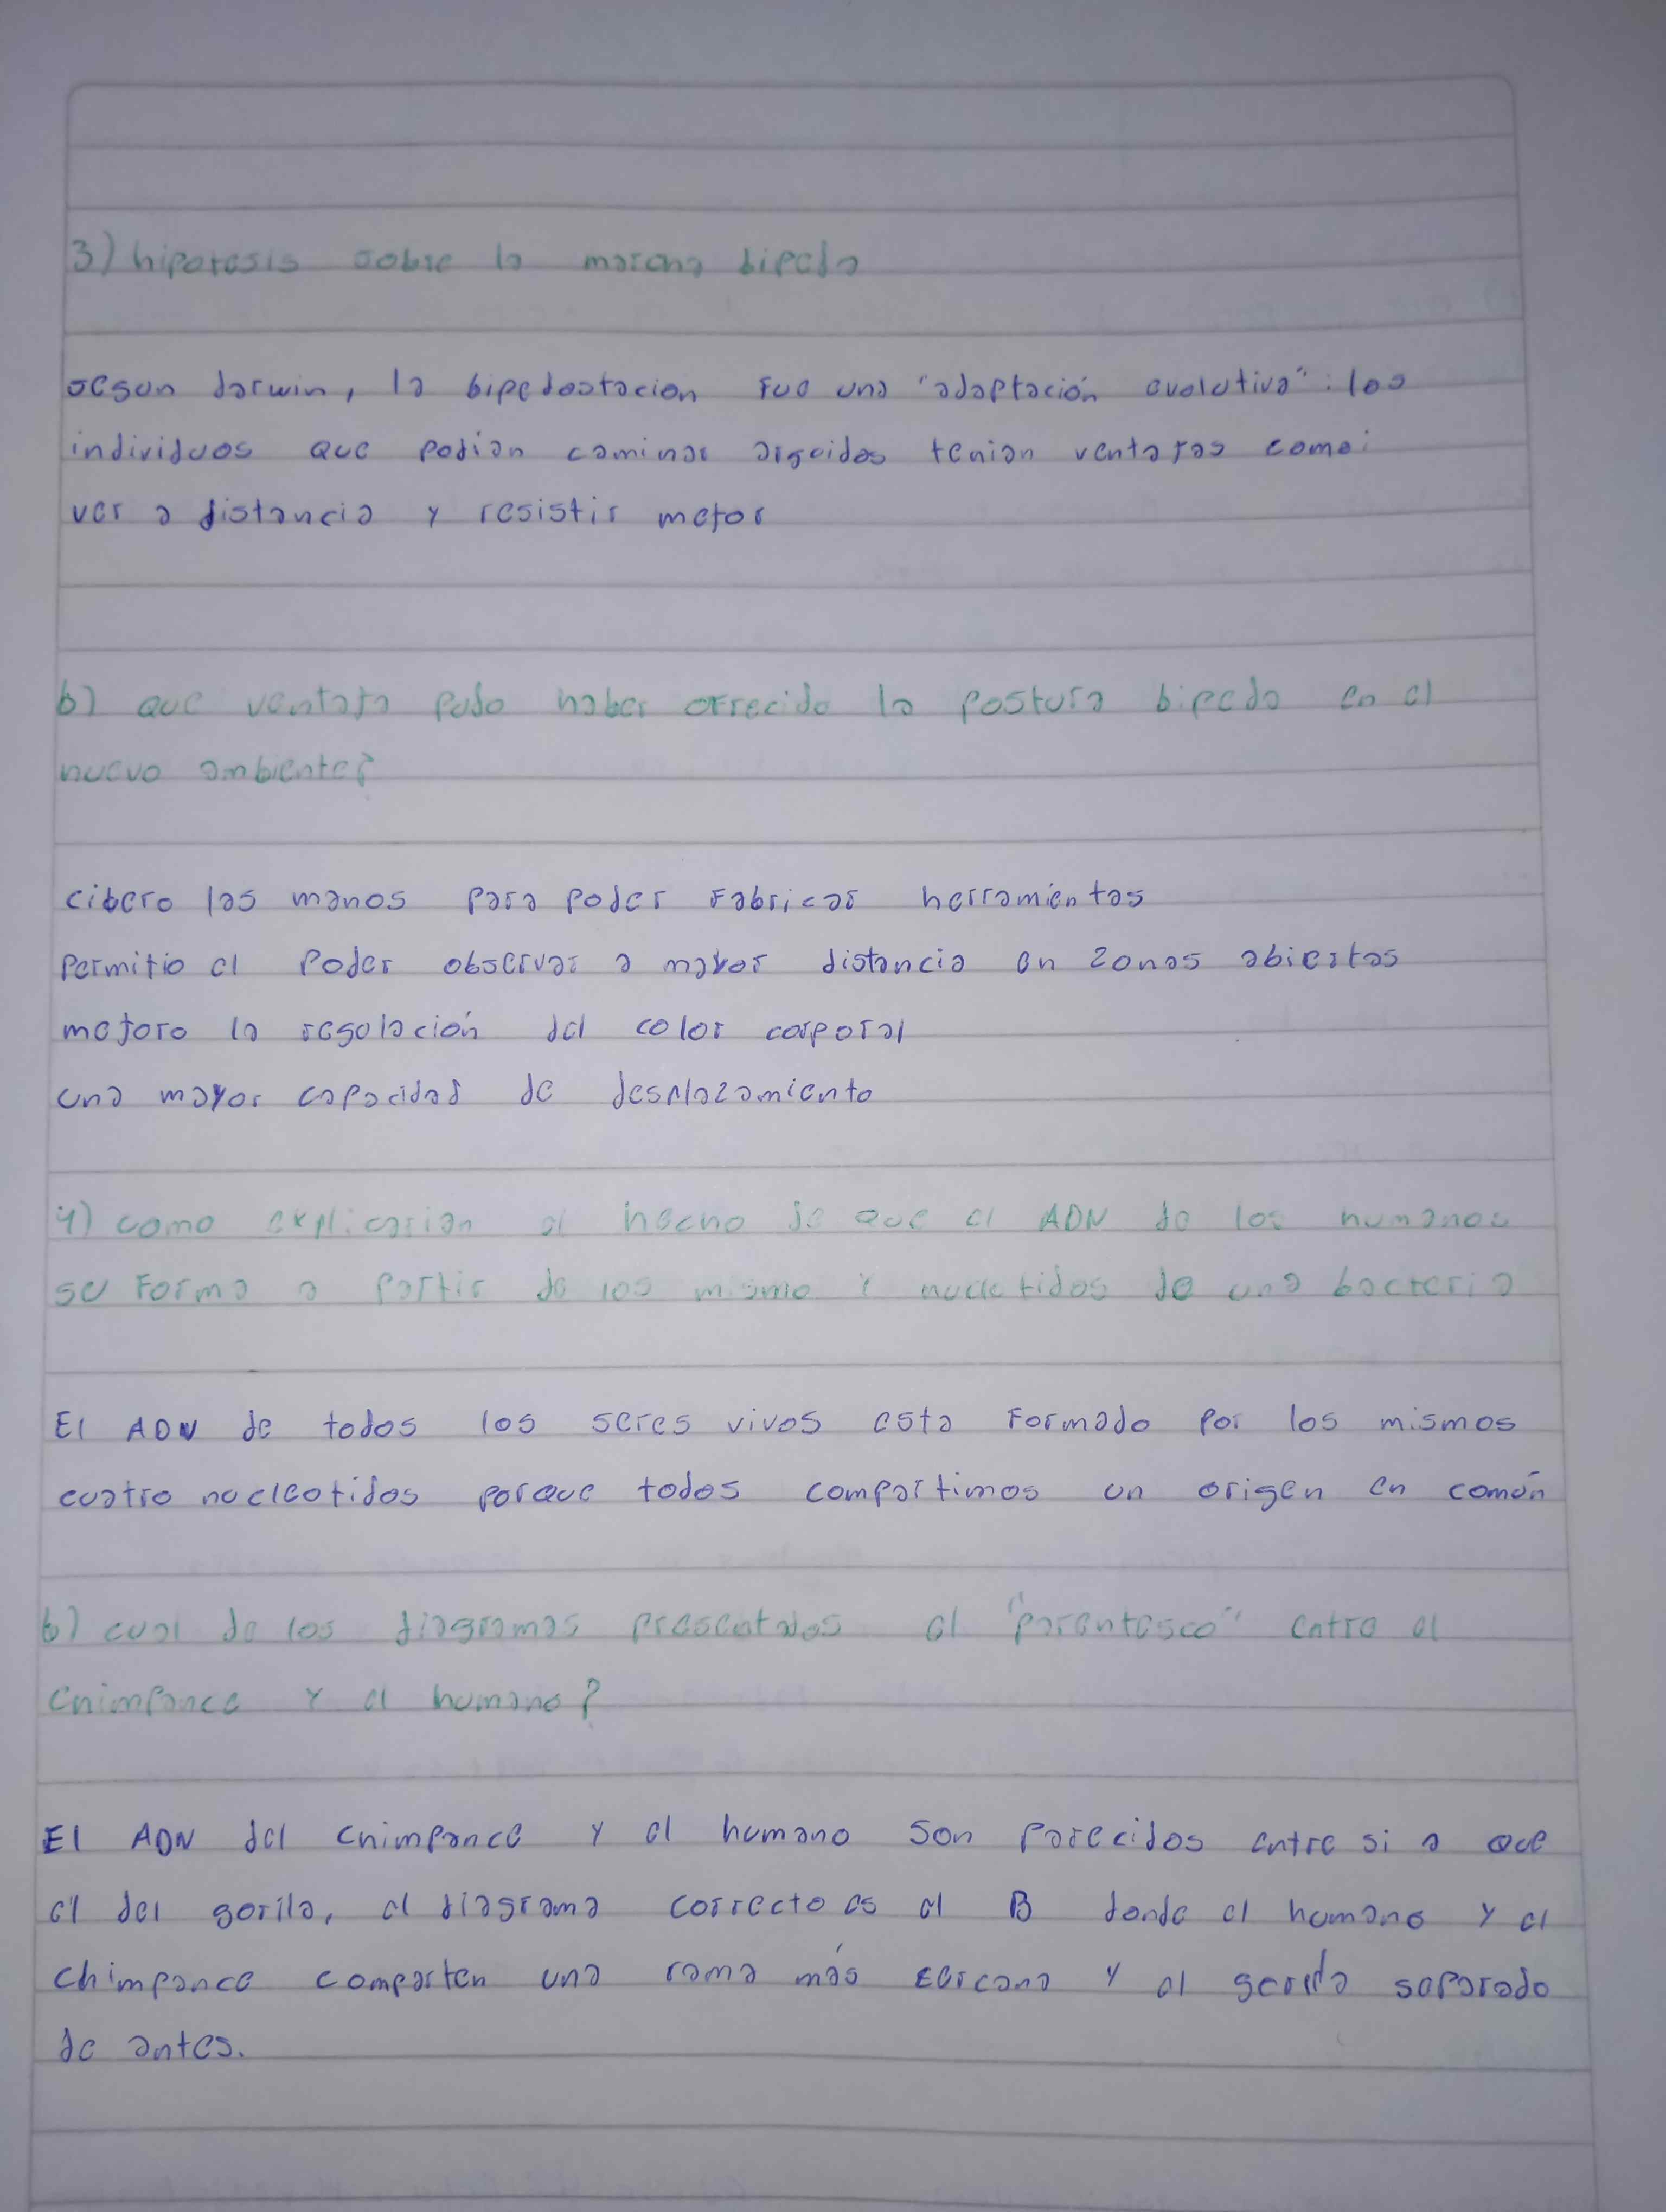 3) hipotesis sobre la marcha bipeda
segun darwin, la bipedestacion fue una "adaptación evolutiva": los
individuos que podian caminar erguidos tenian ventajas como:
ver a distancia y resistir mejor
b) que ventaja pudo haber ofrecido la postura bipeda en el
nuevo ambiente?
libero las manos para poder fabricar herramientas
permitio el poder observar a mayor distancia en zonas abiertas
mejoro la regulación del color corporal
una mayor capacidad de desplazamiento
4) como explicarian el hecho de que el ADN de los humanos
se forma a partir de los mismo 4 nucletidos de una bacteria
El ADN de todos los seres vivos esta formado por los mismos
cuatro nucleotidos porque todos compartimos un origen en común
b) cual de los diagramas presentados el "parentesco" entre el
chimpance y el humano?
El ADN del chimpance y el humano son parecidos entre si a que
el del gorila, el diagrama correcto es el B donde el humano y el
chimpance comparten una rama más cercana y el gorila separado
de antes.